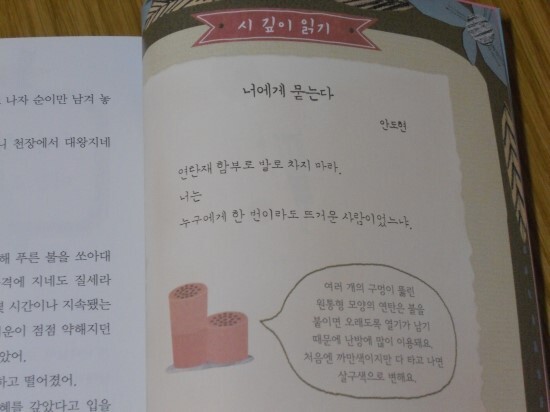 나자 순이만 남겨 놓
니 천장에서 대왕지네
해 푸른 불을 쏘아대
격에 지네도 질세라
몇 시간이나 지속됐는
운이 점점 약해지던
았어.
하고 떨어졌어.
혜를 갚았다고 입을
시 깊이 읽기
너에게 묻는다
안도현
연탄재 함부로 발로 차지 마라.
너는
누구에게 한 번이라도 뜨거운 사람이었느냐.
여러 개의 구멍이 뚫린
원통형 모양의 연탄은 불을
붙이면 오래도록 열기가 남기
때문에 난방에 많이 이용돼요.
처음엔 까만색이지만 다 타고 나면
살구색으로 변해요.